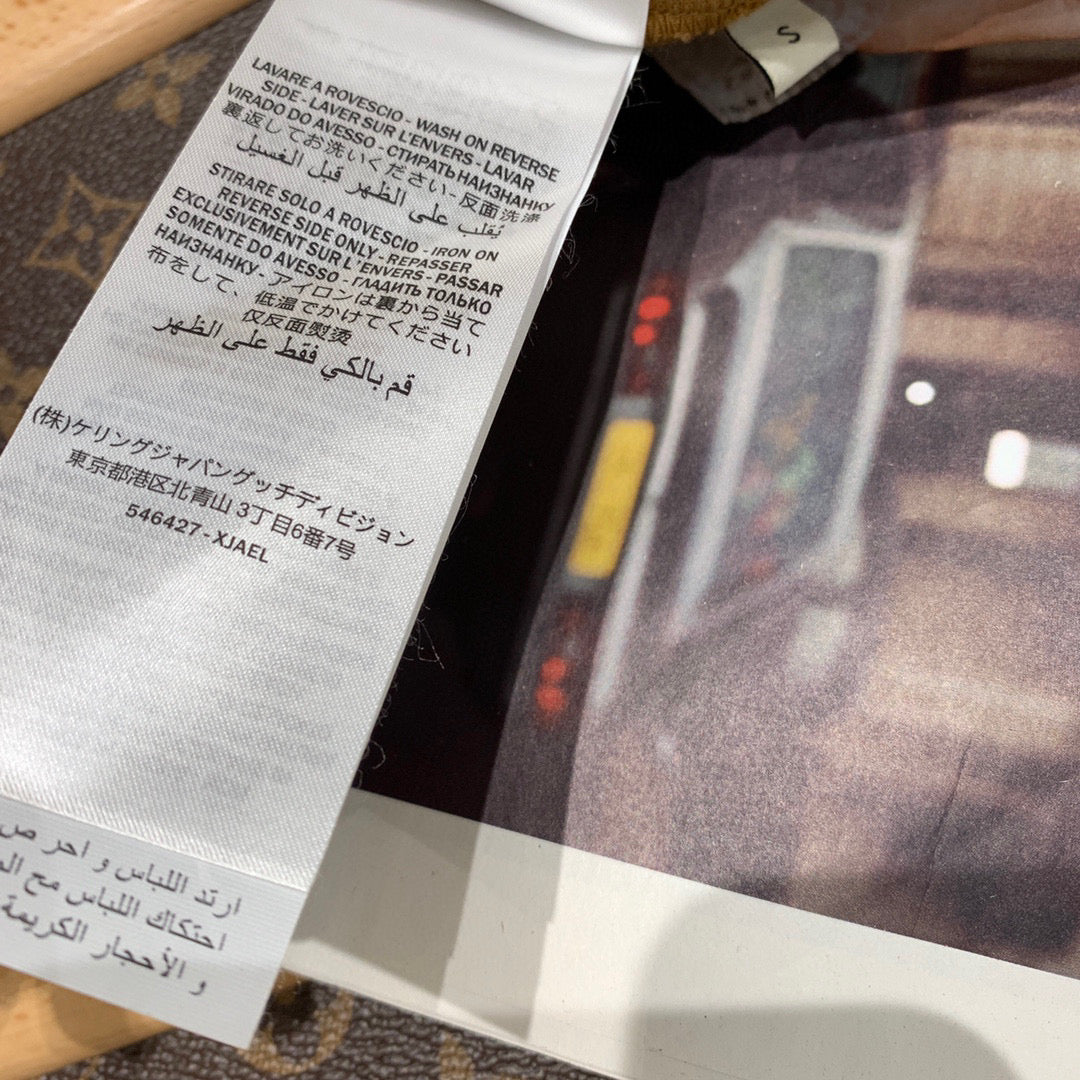 LAVARE A ROVESCIO - WASH ON REVERSE
SIDE - LAVER SUR L'ENVERS - LAVAR
VIRADO DO AVESSO - СТИРАТЬ НАИЗНАНКУ
裏返してお洗いください - 反面洗滌
يُقلب على الظهر قبل الغسيل
STIRARE SOLO A ROVESCIO - IRON ON
REVERSE SIDE ONLY - REPASSER
EXCLUSIVEMENT SUR L'ENVERS - PASSAR
SOMENTE DO AVESSO - ГЛАДИТЬ ТОЛЬКО
НАИЗНАНКУ - アイロンは裏から当て
布をして、低温でかけてください
仅反面熨烫
قم بالكي فقط على الظهر
(株)ケリングジャパングッチディビジョン
東京都港区北青山 3丁目6番7号
546427 - XJAEL
ارتد اللباس و احر
احتكاك اللباس مع
و الأحجار الكريمة
S